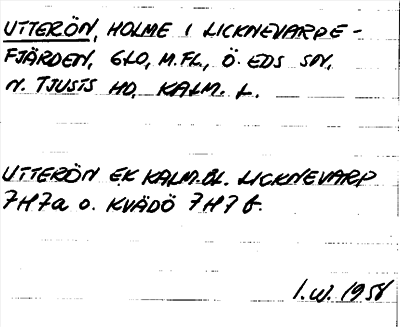 UTTERÖN, HOLME I LICKNEVARPE-
FJÄRDEN, GLO, M.FL, Ö. EDS SN,
N. TJUSTS HD, KALM. L.
UTTERÖN EK KALM.BL. LICKNEVARP
7H7a o. KVÄDÖ 7H7b.
I.W. 1958